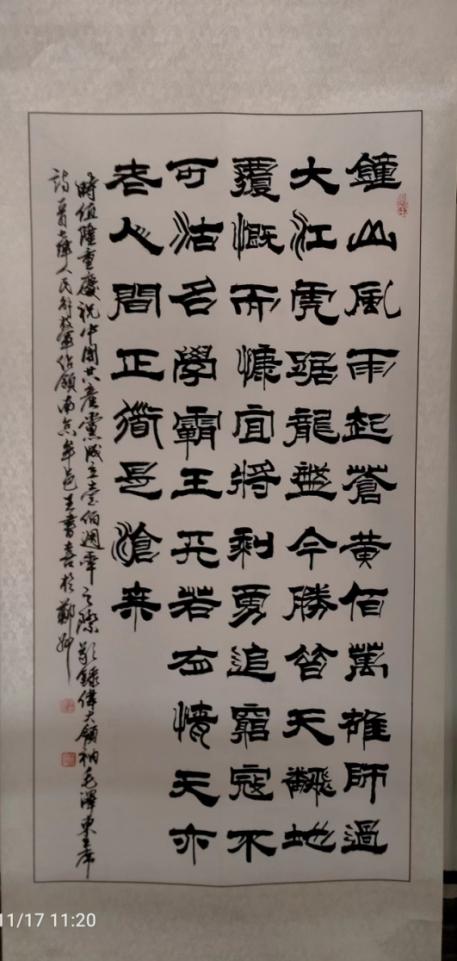 鐘山風雨起蒼黄佰萬雄師過
大江虎踞龍盤今勝昔天翻地
覆慨而慷宜將剩勇追窮寇不
可沽名學霸王天若有情天亦
老人間正道是滄桒
時值隆重慶祝中國共產黨成立壹佰週年之際敬錄偉大領袖毛澤東主席
詩一首七律人民解放軍佔領南京牟邑王書喜於鄭州
11/17 11:20